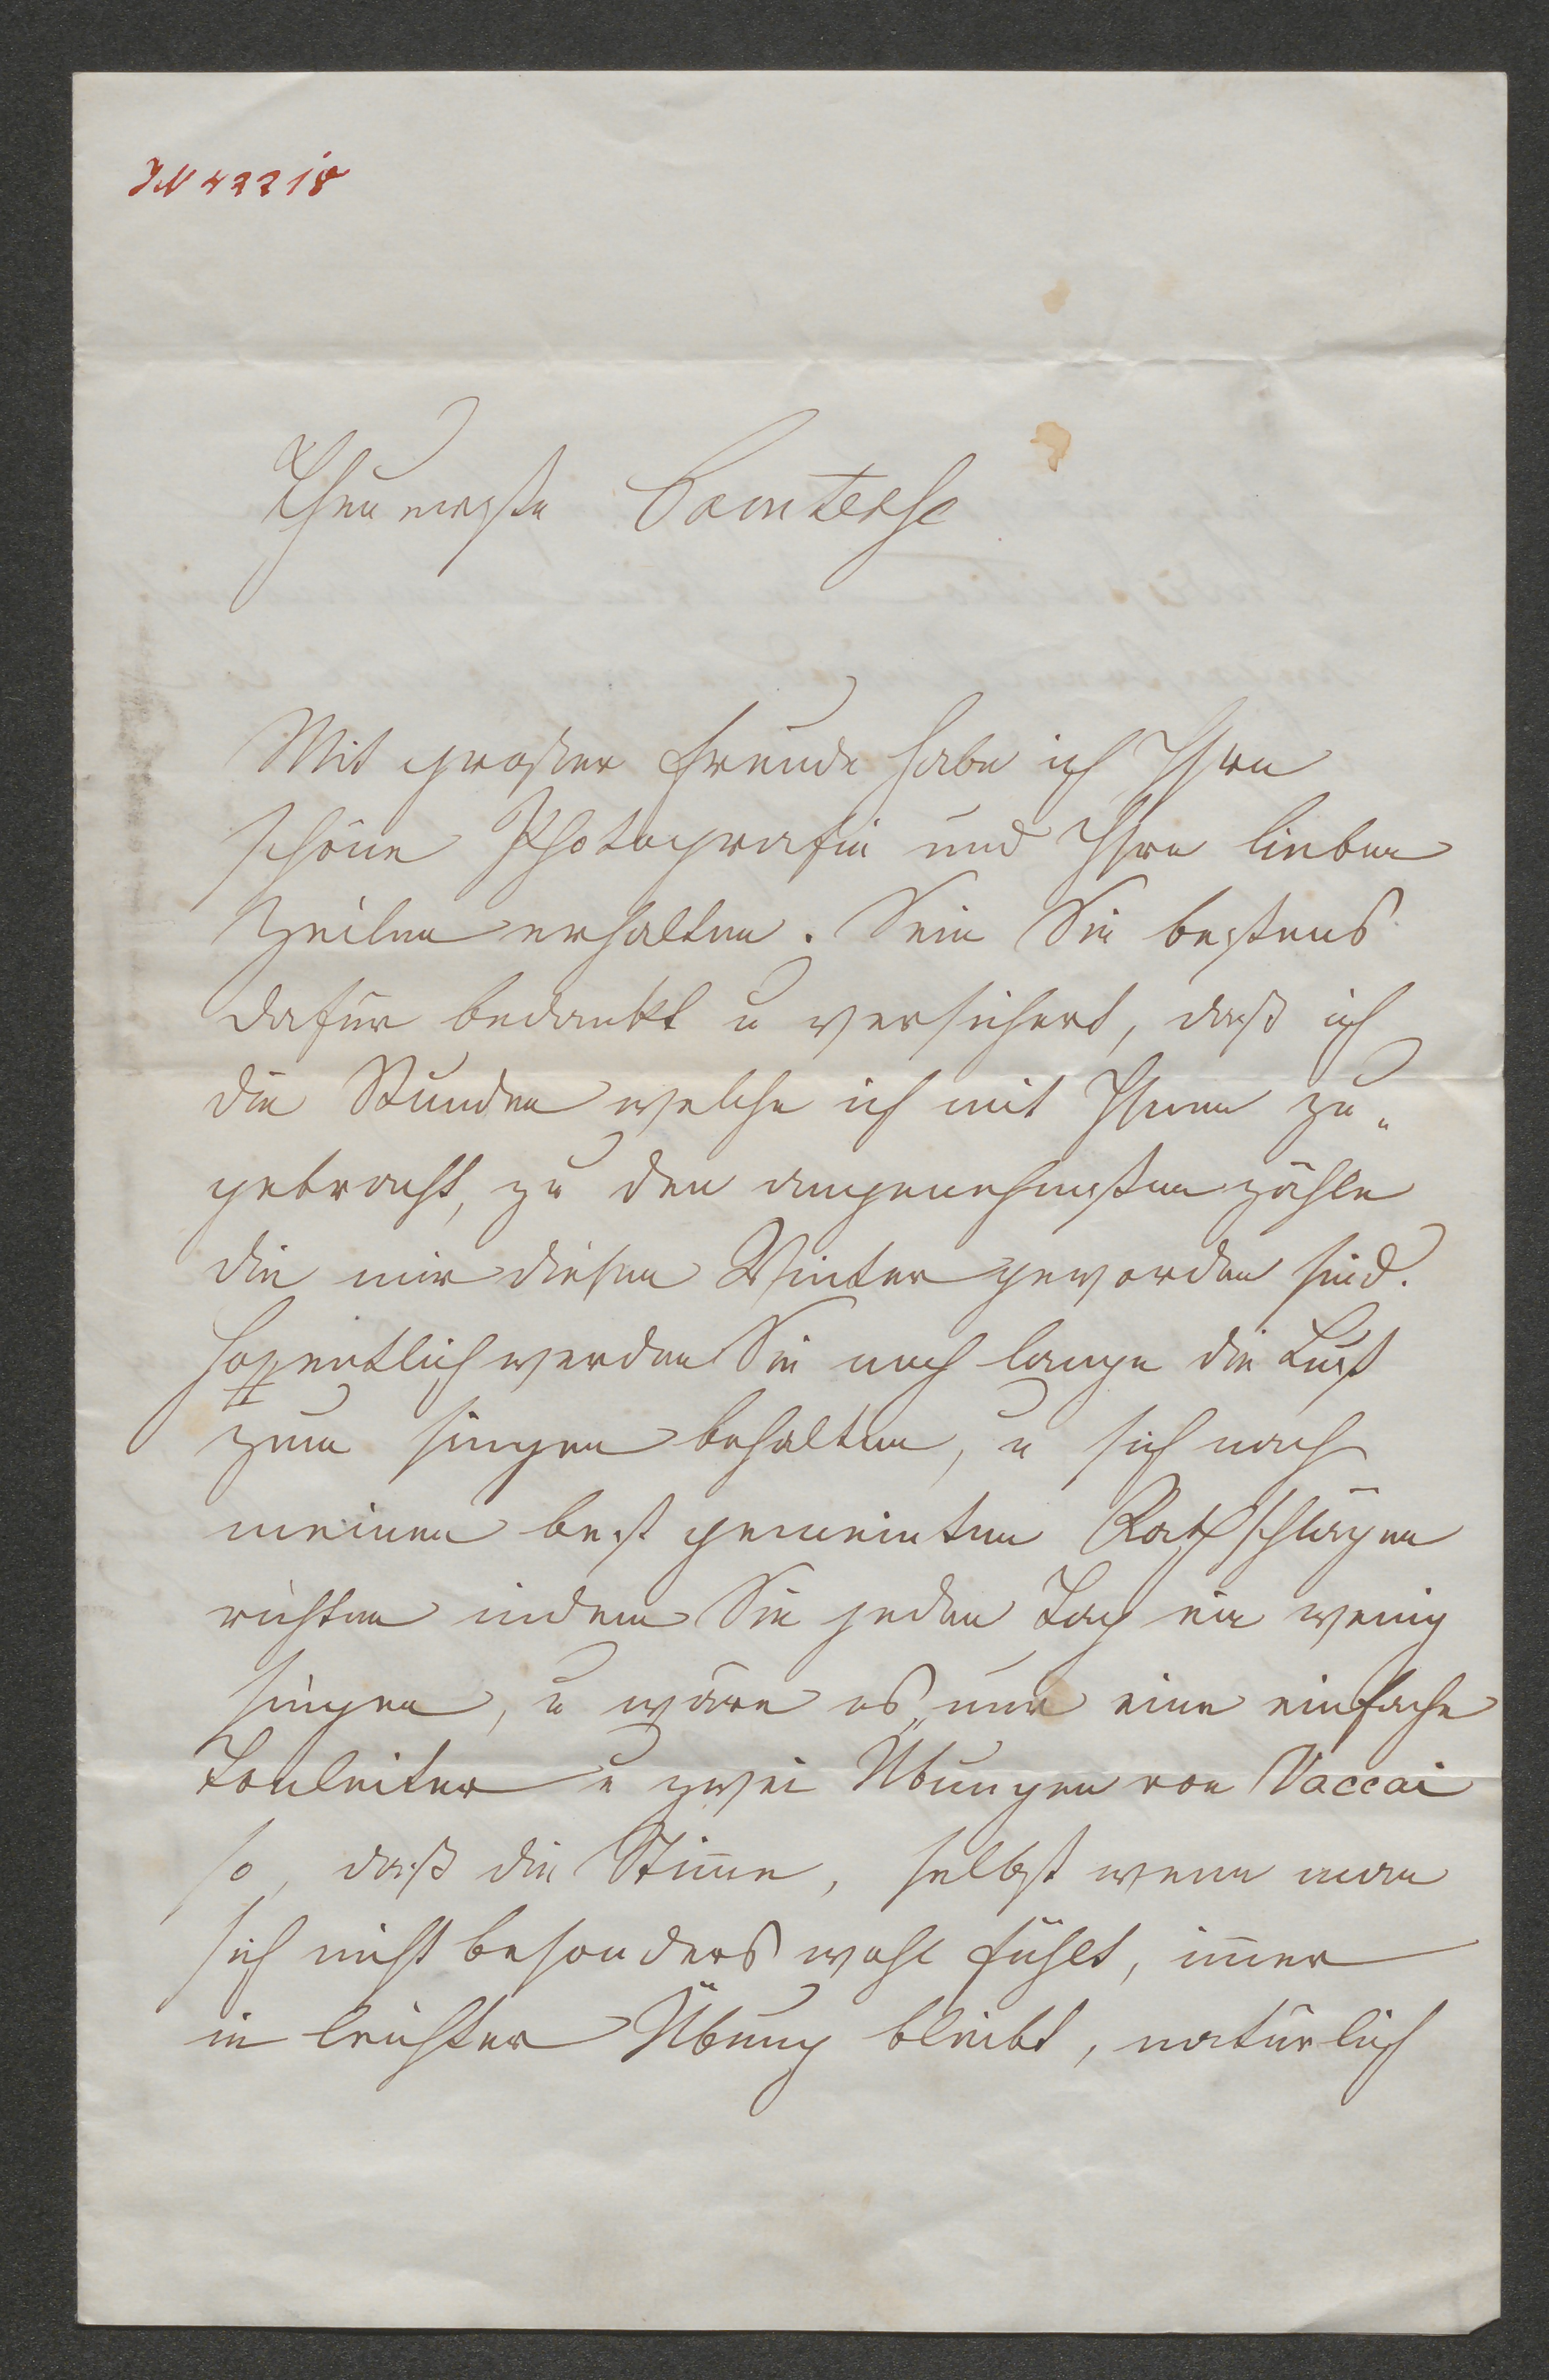 IN 42218
Theuerste Comtesse
Mit großer Freude habe ich Ihre
schöne Photografie und Ihre lieben
Zeilen erhalten. Seien Sie bestens
dafür bedankt u versichert, daß ich
die Stunden welche ich mit Ihnen zu„
gebracht, zu den angenehmsten zähle
die mir diesen Winter geworden sind.
Hoffentlich werden Sie noch lange die Lust
zum singen behalten, u sich nach
meinen best gemeinten Rathschlägen
richten indem Sie jeden Tag ein wenig
singen, u wäre es nur eine einfache
Tonleiter u zwei Übungen von Vaccai
so, daß die Stim̅e, selbst wenn man
sich nicht besonders wohl fühlt, im̅er
in leichter Übung bleibt, natürlich